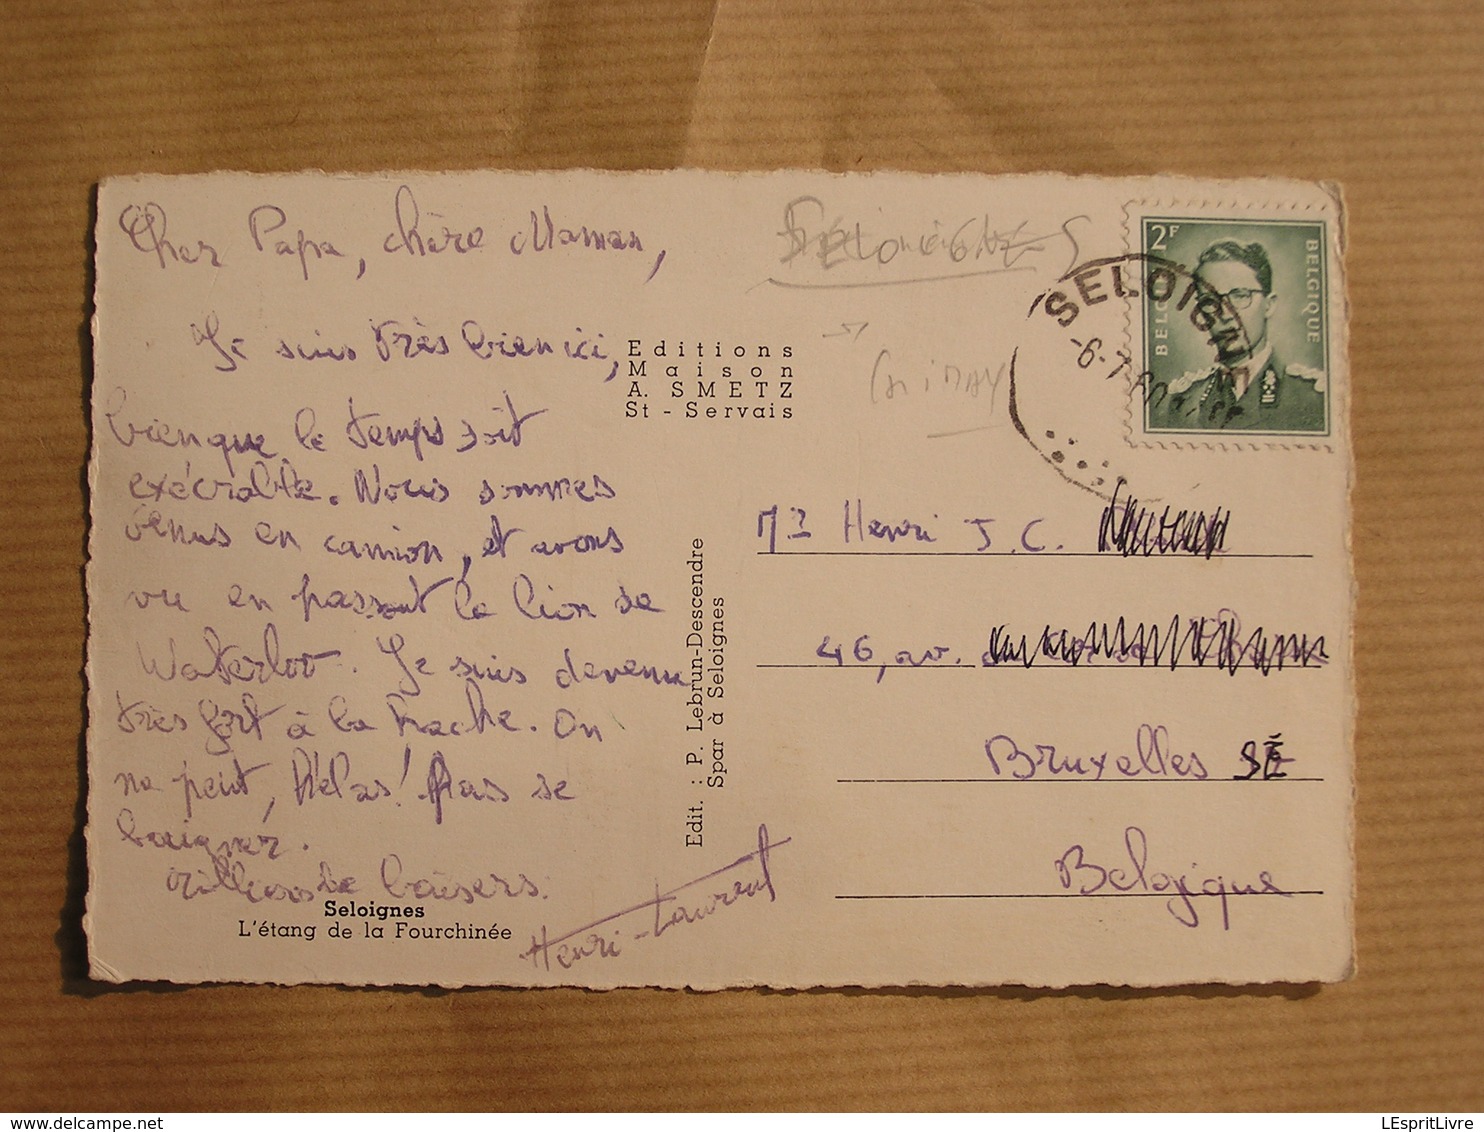 Cher Papa, chère Maman,
Je suis très bien ici,
bien que le temps soit
exécrable. Nous sommes
venus en camion, et avons
vu en passant le lion de
Waterloo. Je suis devenu
très fort à la hache. On
ne peut, hélas! pas se
baigner.
Milliers de baisers.
Henri-Laurent
Seloignes
L'étang de la Fourchinée
Editions
Maison
A. SMETZ
St - Servais
Edit. : P. Lebrun-Descendre
Spar à Seloignes
CHIMAY
2F
BELGIQUE
SELOIGNE
-6-7
Mr Henri J. C.
46, av.
Bruxelles
Belgique
LEspritLivre